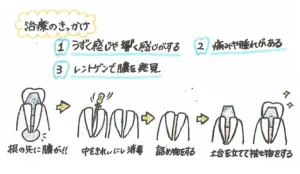 治療のきっかけ
1 うずく感じや響く感じがする
2 痛みや腫れがある
3 レントゲンで膿を発見
根の先に膿が!!
中をきれいにし消毒
詰め物をする
土台を立てて被せ物をする